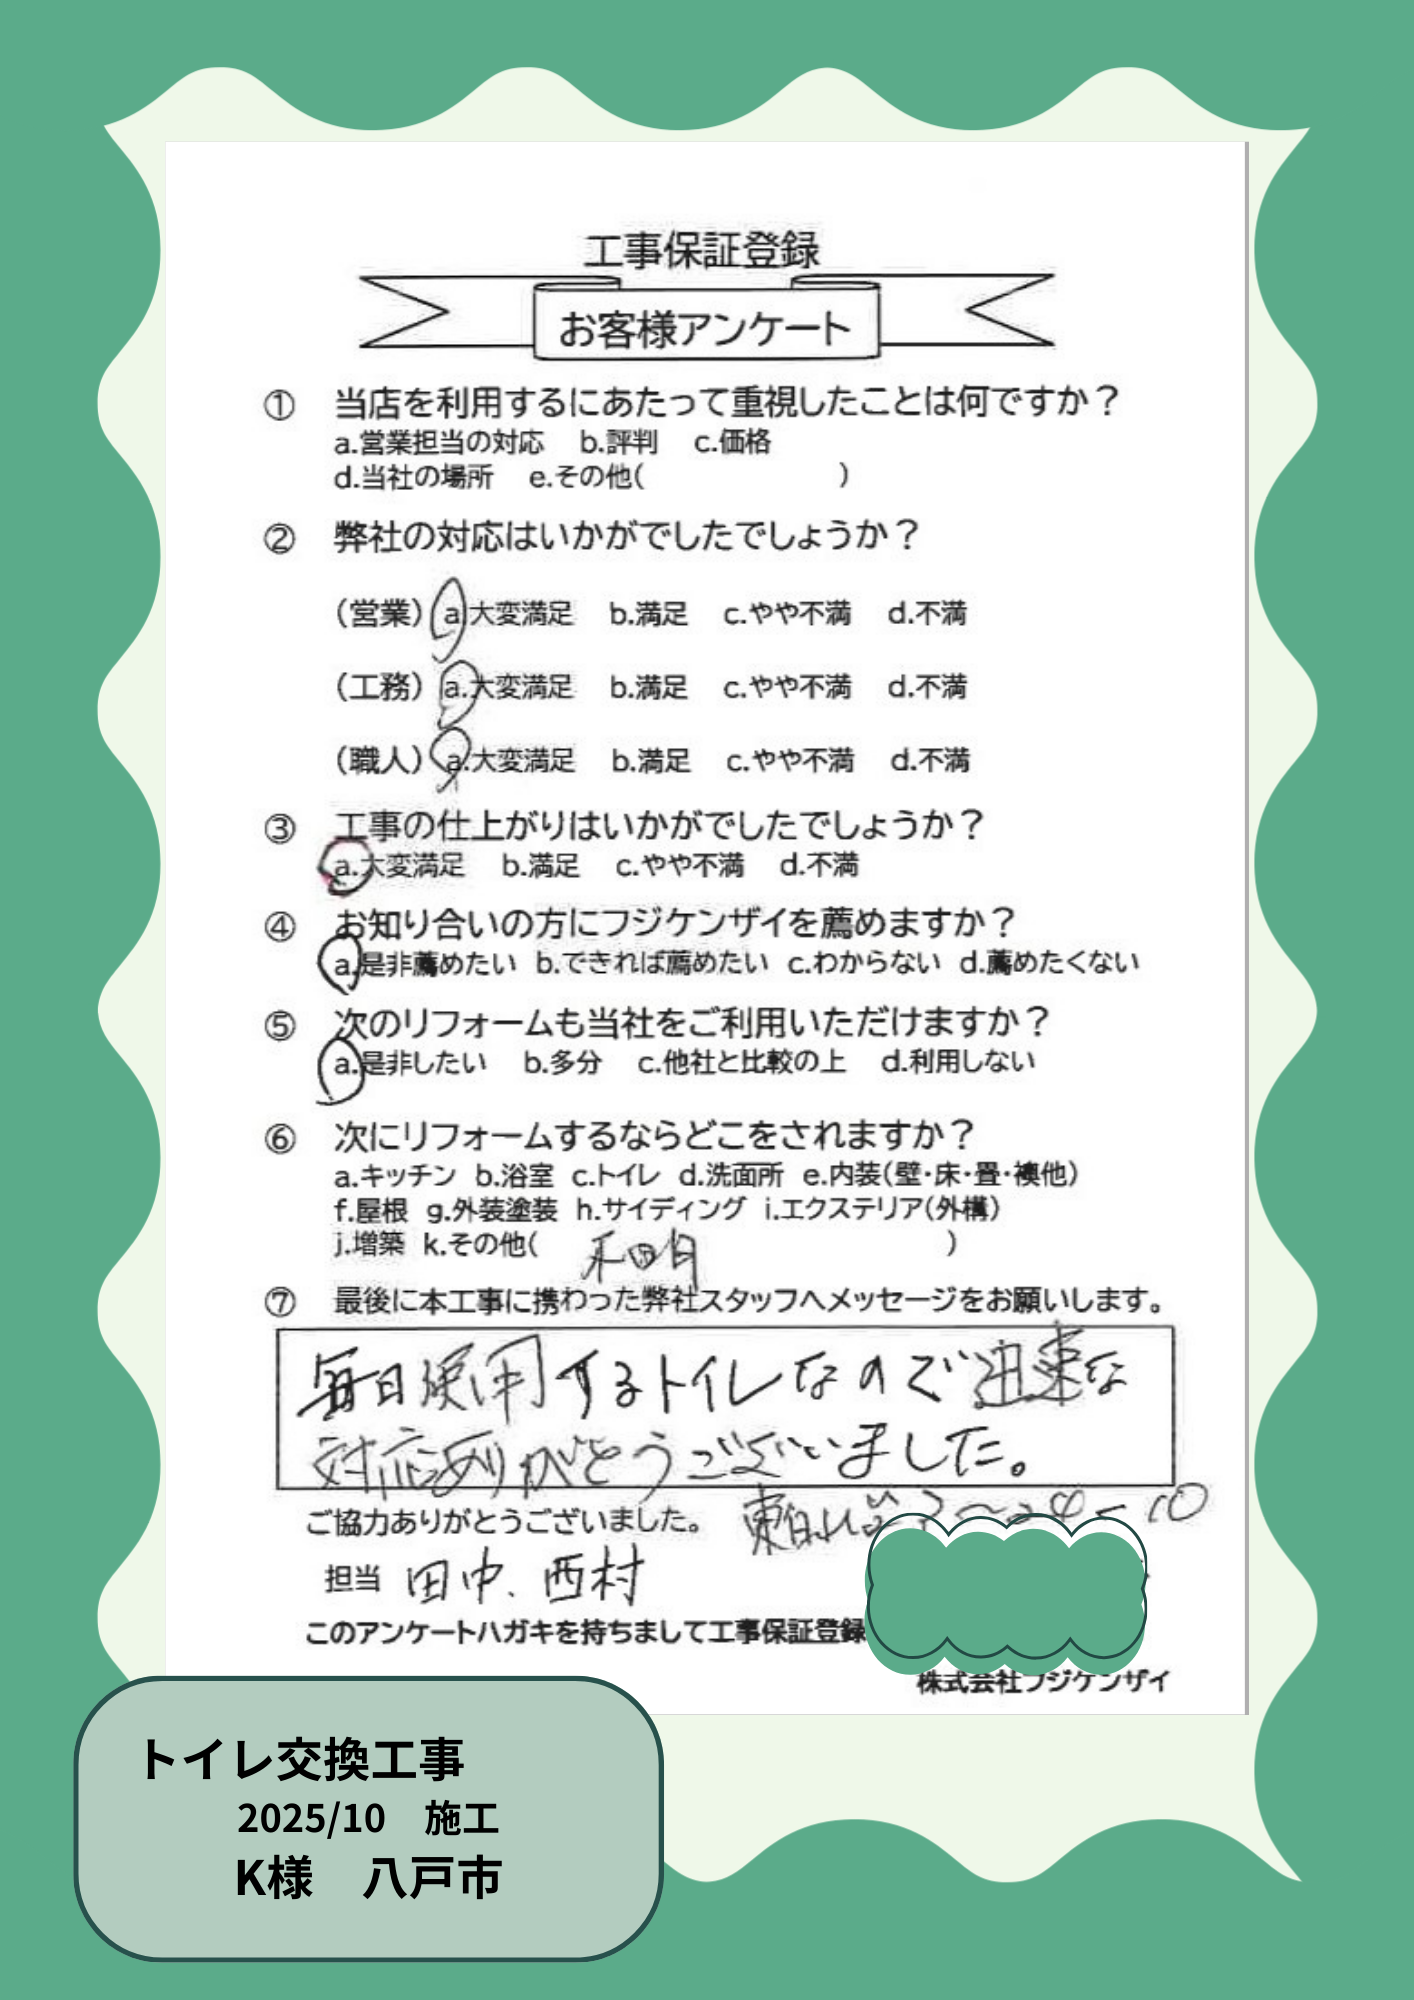 工事保証登録
お客様アンケート
① 当店を利用するにあたって重視したことは何ですか？
a.営業担当の対応 b.評判 c.価格
d.当社の場所 e.その他( )
② 弊社の対応はいかがでしたでしょうか？
(営業) a.大変満足 b.満足 c.やや不満 d.不満
(工務) a.大変満足 b.満足 c.やや不満 d.不満
(職人) a.大変満足 b.満足 c.やや不満 d.不満
③ 工事の仕上がりはいかがでしたでしょうか？
a.大変満足 b.満足 c.やや不満 d.不満
④ お知り合いの方にフジケンザイを薦めますか？
a.是非薦めたい b.できれば薦めたい c.わからない d.薦めたくない
⑤ 次のリフォームも当社をご利用いただけますか？
a.是非したい b.多分 c.他社と比較の上 d.利用しない
⑥ 次にリフォームするならどこをされますか？
a.キッチン b.浴室 c.トイレ d.洗面所 e.内装(壁・床・畳・襖他)
f.屋根 g.外装塗装 h.サイディング i.エクステリア(外構)
j.増築 k.その他( )
⑦ 最後に本工事に携わった弊社スタッフへメッセージをお願いします。
毎日使用するトイレなので迅速な
対応ありがとうございました。
ご協力ありがとうございました。
担当 田中、西村
このアンケートハガキを持ちまして工事保証登録
株式会社フジケンザイ
トイレ交換工事
2025/10 施工
K様 八戸市